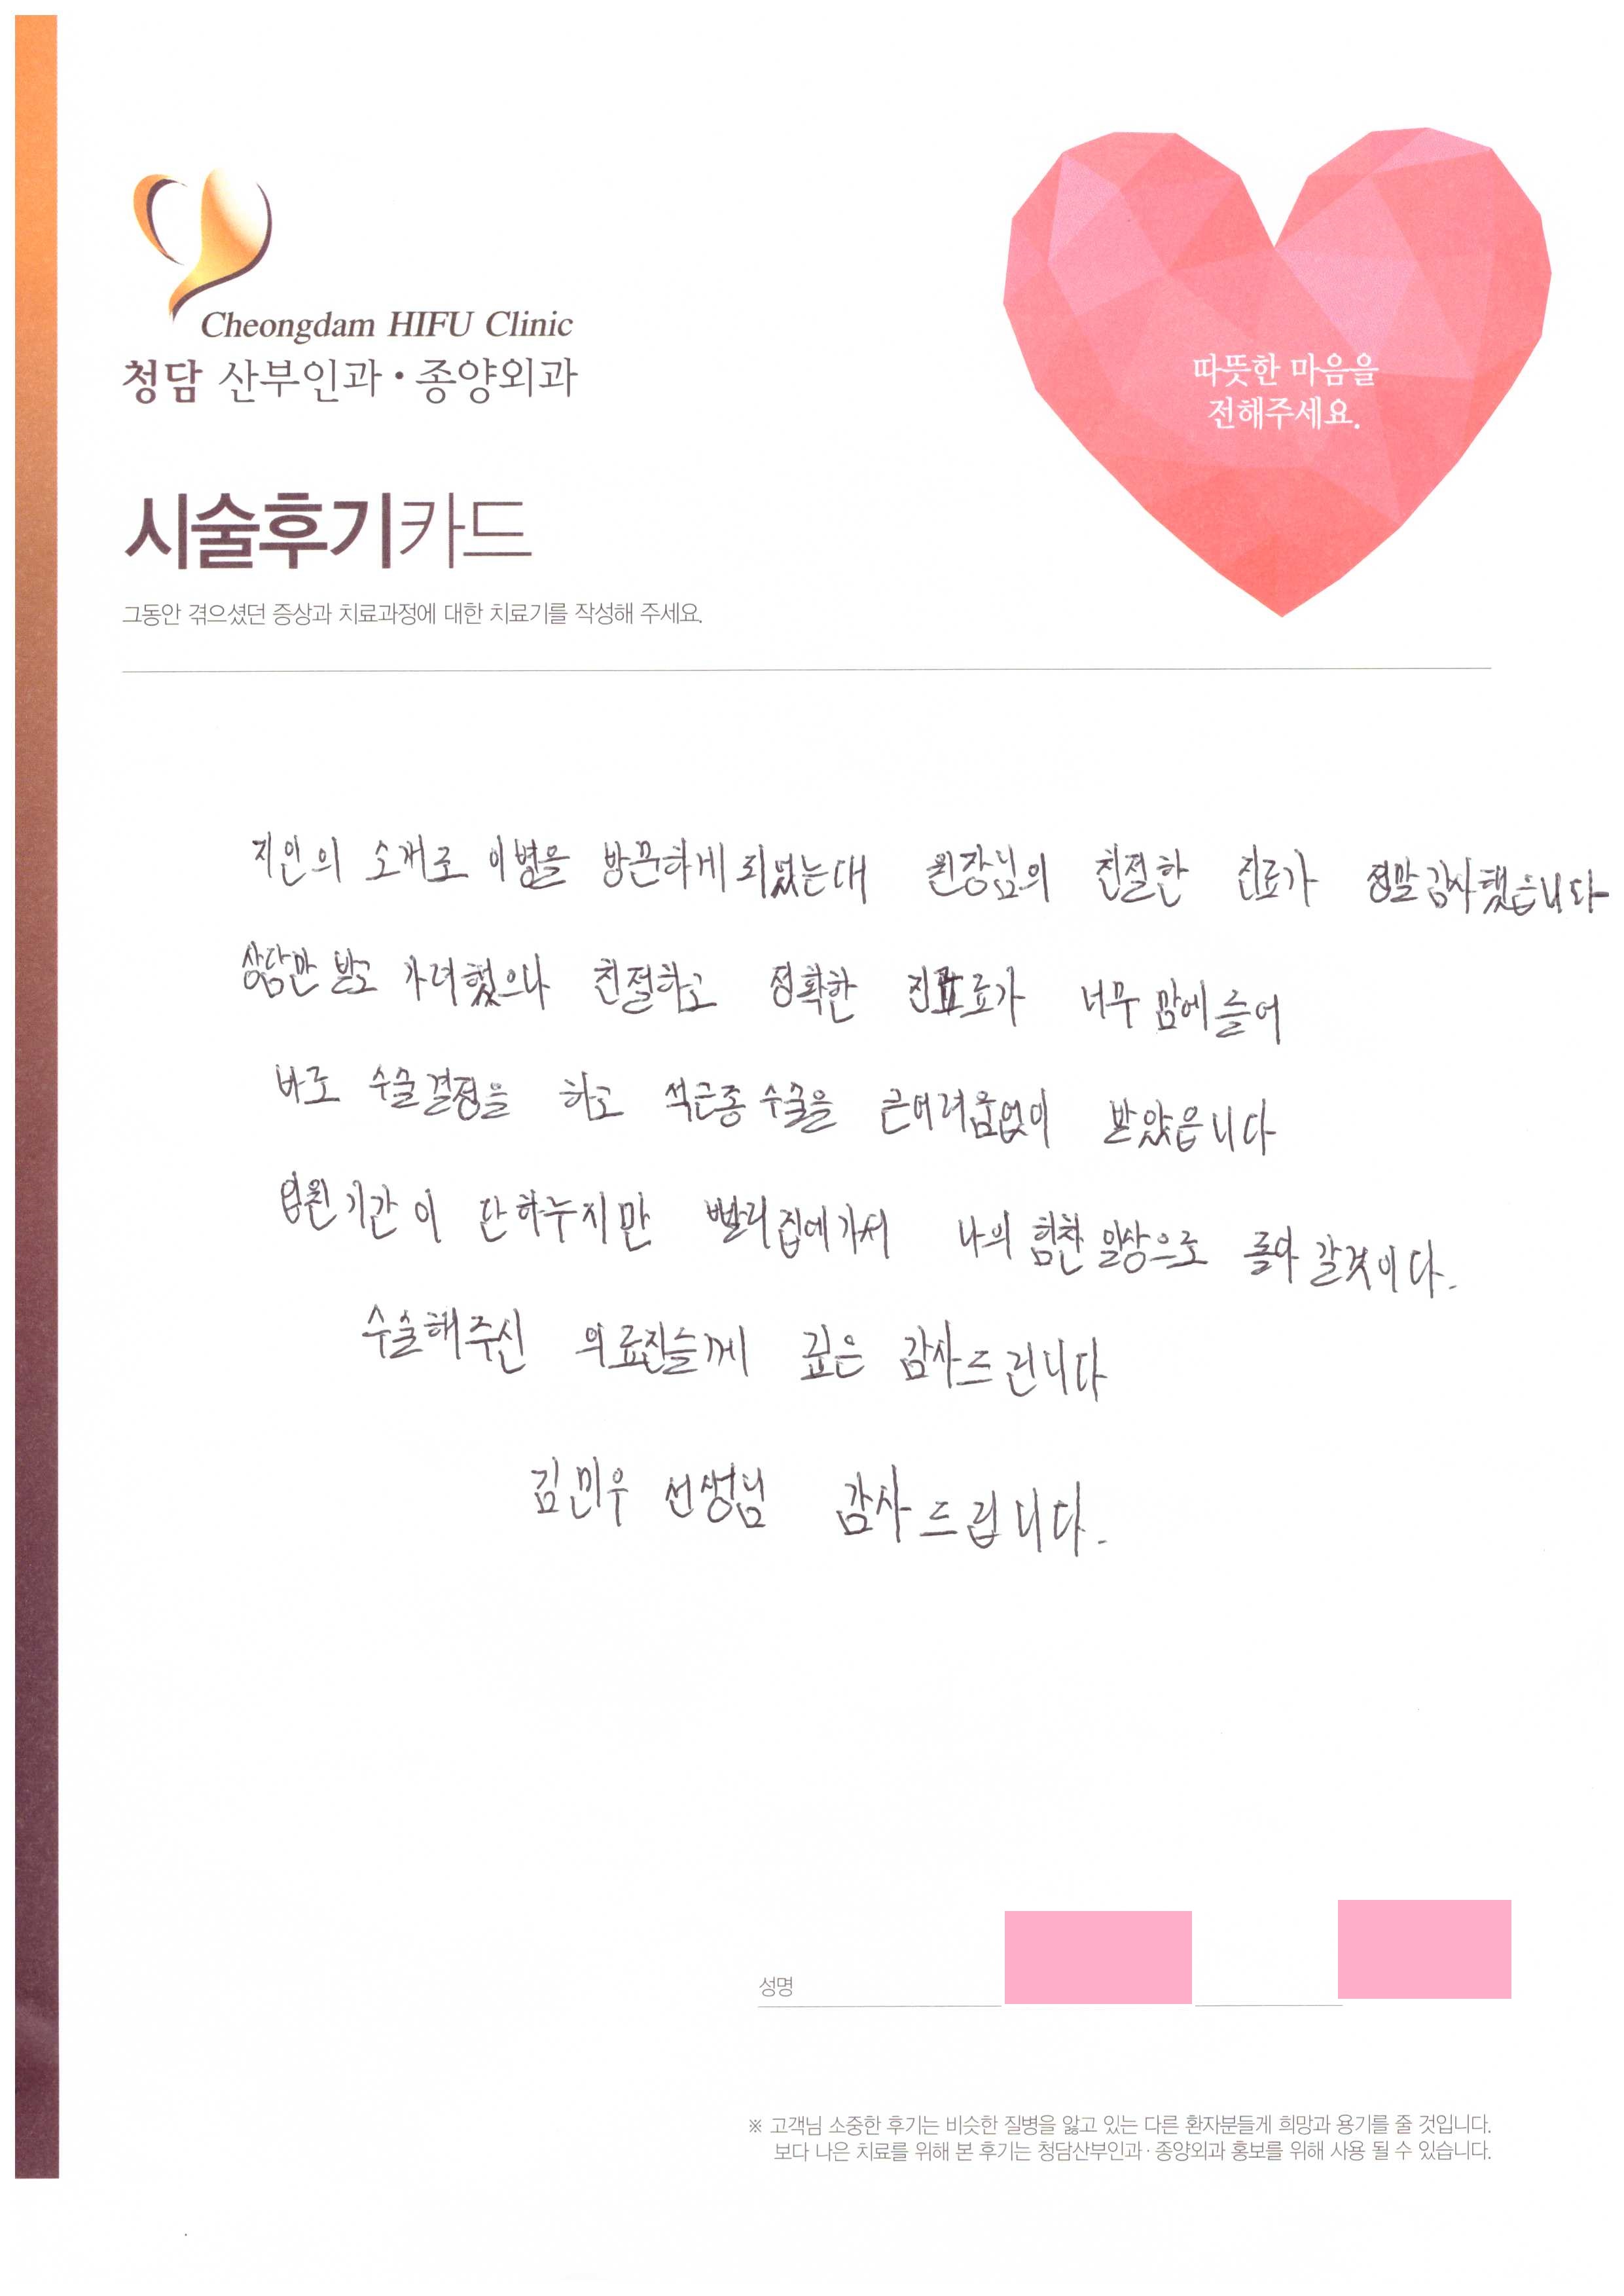 Cheongdam HIFU Clinic
청담 산부인과·종양외과
따뜻한 마음을
전해주세요.
시술후기카드
그동안 겪으셨던 증상과 치료과정에 대한 치료기를 작성해 주세요.
지인의 소개로 이병을 방문하게 되었는대 원장님의 친절한 진료가 정말 감사했습니다
상담만 받고 가려했으나 친절하고 정확한 진료가 너무 맘에 들어
바로 수술결정을 하고 석근종 수술을 큰어려움없이 받았읍니다
입원기간이 단하누지만 빨리 집에가서 나의 힘찬 일상으로 돌아 갈것이다.
수술해주신 의료진들께 깊은 감사드린니다
김민우 선생님 감사드립니다.
성명
※ 고객님 소중한 후기는 비슷한 질병을 앓고 있는 다른 환자분들게 희망과 용기를 줄 것입니다.
보다 나은 치료를 위해 본 후기는 청담산부인과·종양외과 홍보를 위해 사용 될 수 있습니다.